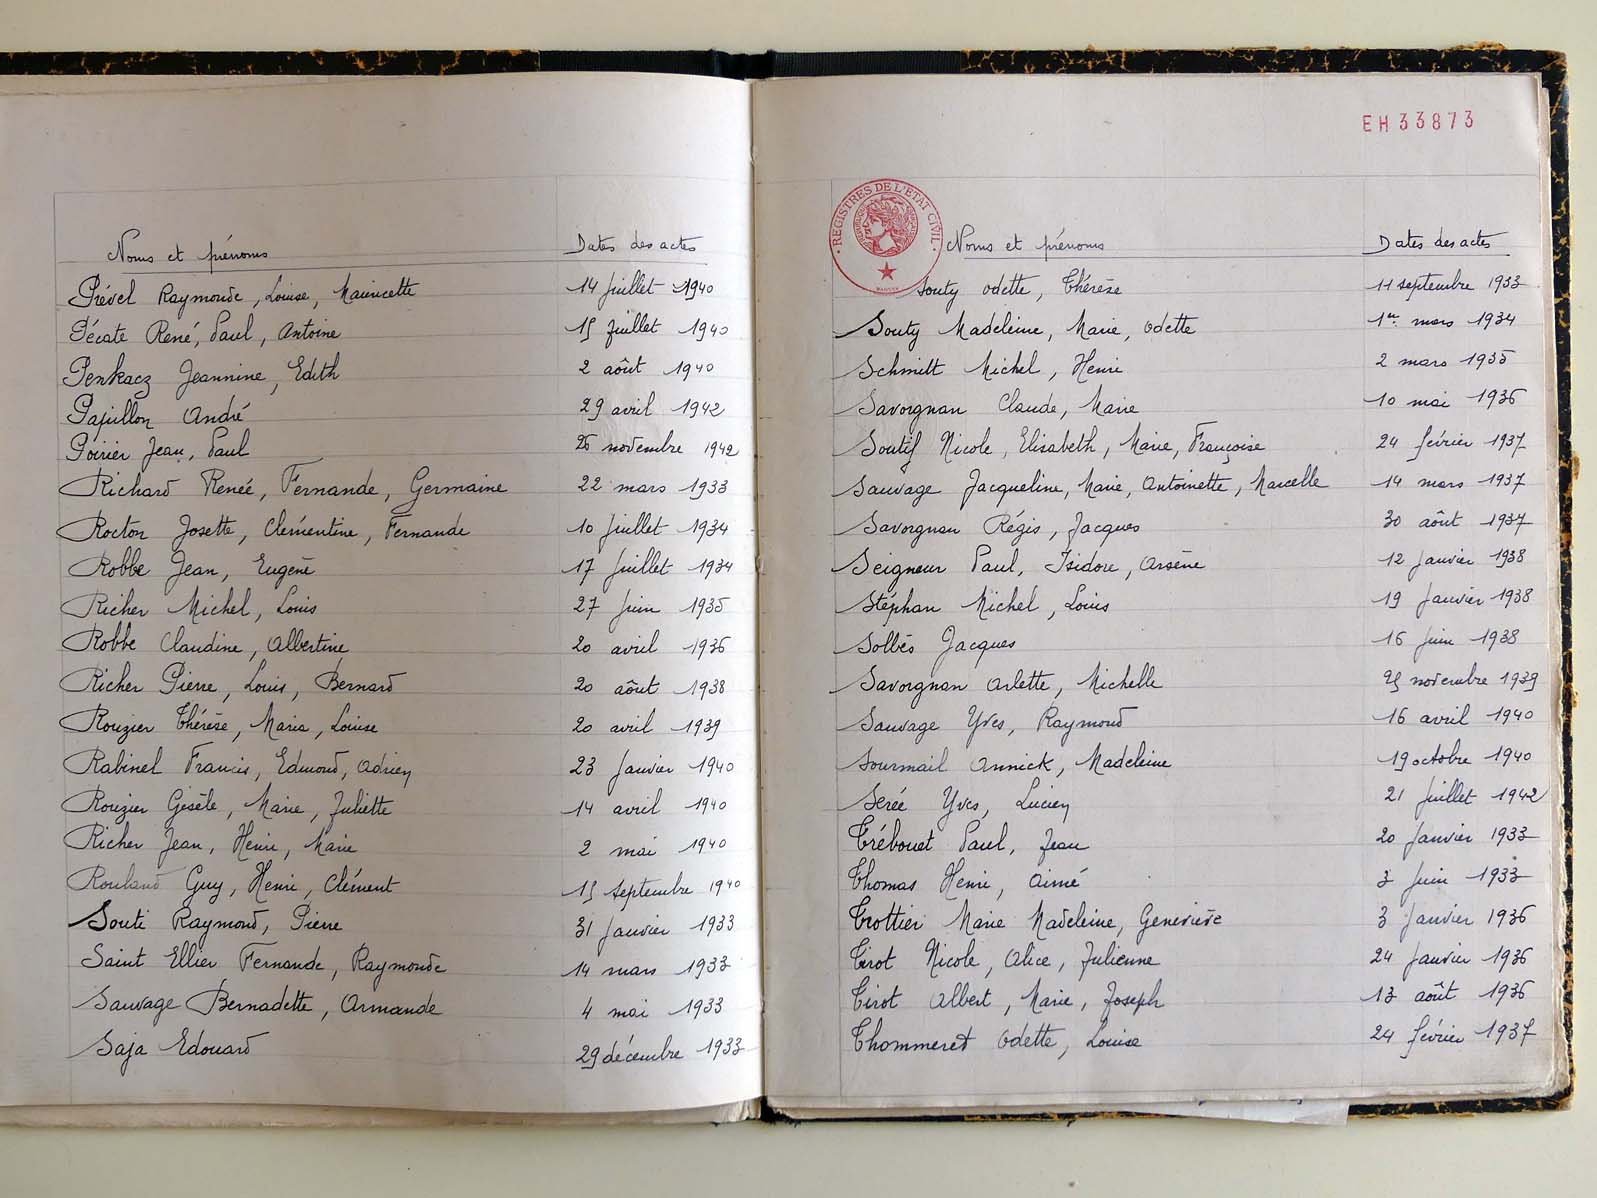 Noms et prénoms Dates des actes
Prével Raymonde, Louise, Mauricette 14 Juillet 1940
Pécate René, Paul, Antoine 15 Juillet 1940
Penkacz Jeannine, Edith 2 août 1940
Papillon André 29 avril 1942
Poirier Jean, Paul 26 novembre 1942
Richard Renée, Fernande, Germaine 22 mars 1933
Rocton Josette, Clémentine, Fernande 10 Juillet 1934
Robbe Jean, Eugène 17 Juillet 1934
Richer Michel, Louis 27 Juin 1935
Robbe Claudine, Albertine 20 avril 1936
Richer Pierre, Louis, Bernard 20 août 1938
Rouzier Thérèse, Maria, Louise 20 avril 1939
Rabinel Francis, Edmond, Adrien 23 Janvier 1940
Rouzier Gisèle, Marie, Juliette 14 avril 1940
Richer Jean, Henri, Marie 2 mai 1940
Rouland Guy, Henri, Clément 15 septembre 1940
Souti Raymond, Pierre 31 Janvier 1933
Saint Ellier Fernande, Raymonde 14 mars 1933
Sauvage Bernadette, Armande 4 mai 1933
Saja Edouard 29 décembre 1933
EH33873
REGISTRES DE L'ETAT CIVIL
Noms et prénoms Dates des actes
Souty Odette, Thérèse 11 septembre 1933
Souty Madeleine, Marie, Odette 1er mars 1934
Schmitt Michel, Henri 2 mars 1935
Savorgnan Claude, Marie 10 mai 1936
Soutif Nicole, Elisabeth, Marie, Françoise 24 février 1937
Sauvage Jacqueline, Marie, Antoinette, Marcelle 14 mars 1937
Savorgnan Régis, Jacques 30 août 1937
Seigneur Paul, Isidore, Arsène 12 Janvier 1938
Stéphan Michel, Louis 19 Janvier 1938
Solbès Jacques 16 Juin 1938
Savorgnan Arlette, Michelle 25 novembre 1939
Sauvage Yves, Raymond 16 avril 1940
Sourmail Annick, Madeleine 19 octobre 1940
Serée Yves, Lucien 21 Juillet 1942
Trébouet Paul, Jean 20 Janvier 1933
Thomas Henri, Aimé 3 Juin 1933
Trottier Marie Madeleine, Geneviève 3 Janvier 1936
Tirot Nicole, Alice, Julienne 24 Janvier 1936
Tirot Albert, Marie, Joseph 13 août 1936
Thommeret Odette, Louise 24 février 1937